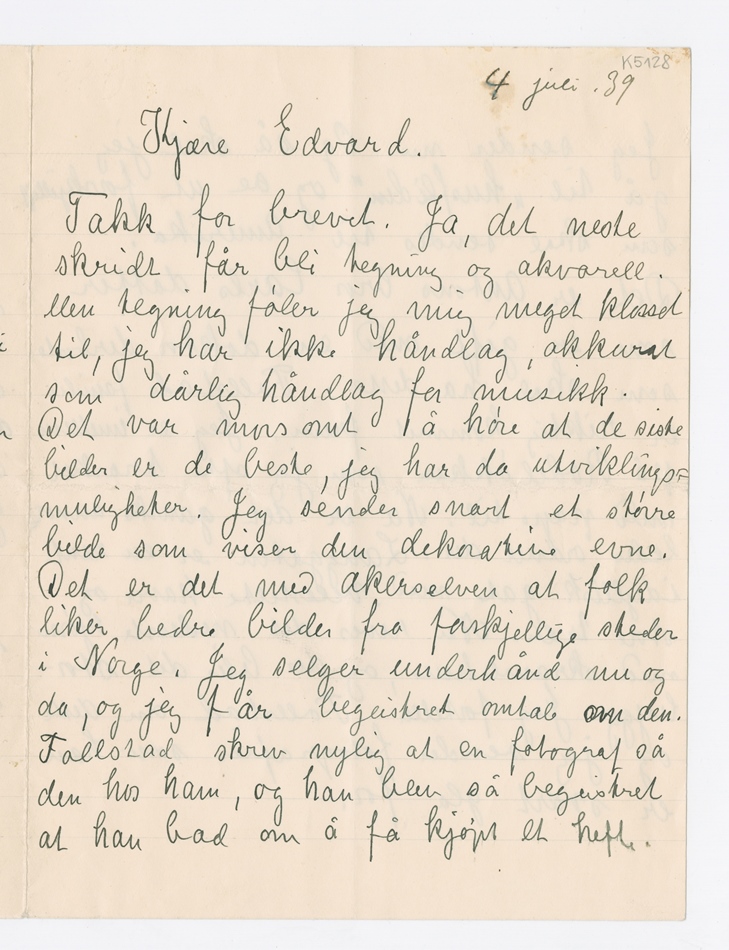 K5128
4 juli . 39
Kjære Edvard.
Takk for brevet. Ja, det neste
skridt får bli tegning og akvarell.
Men tegning føler jeg mig meget klosset
til, jeg har ikke håndlag, akkurat
som dårlig håndlag for musikk.
Det var morsomt å høre at de siste
bilder er de beste, jeg har da utviklings=
muligheter. Jeg sender snart et større
bilde som viser din dekorative evne.
Det er det med akerselven at folk
liker bedre bilder fra forskjellige steder
i Norge. Jeg selger underhånd nu og
da, og jeg får begeistret omtale om den.
Follestad skrev nylig at en fotograf så
den hos ham, og han blev så begeistret
at han bad om å få kjøpt et hefte.